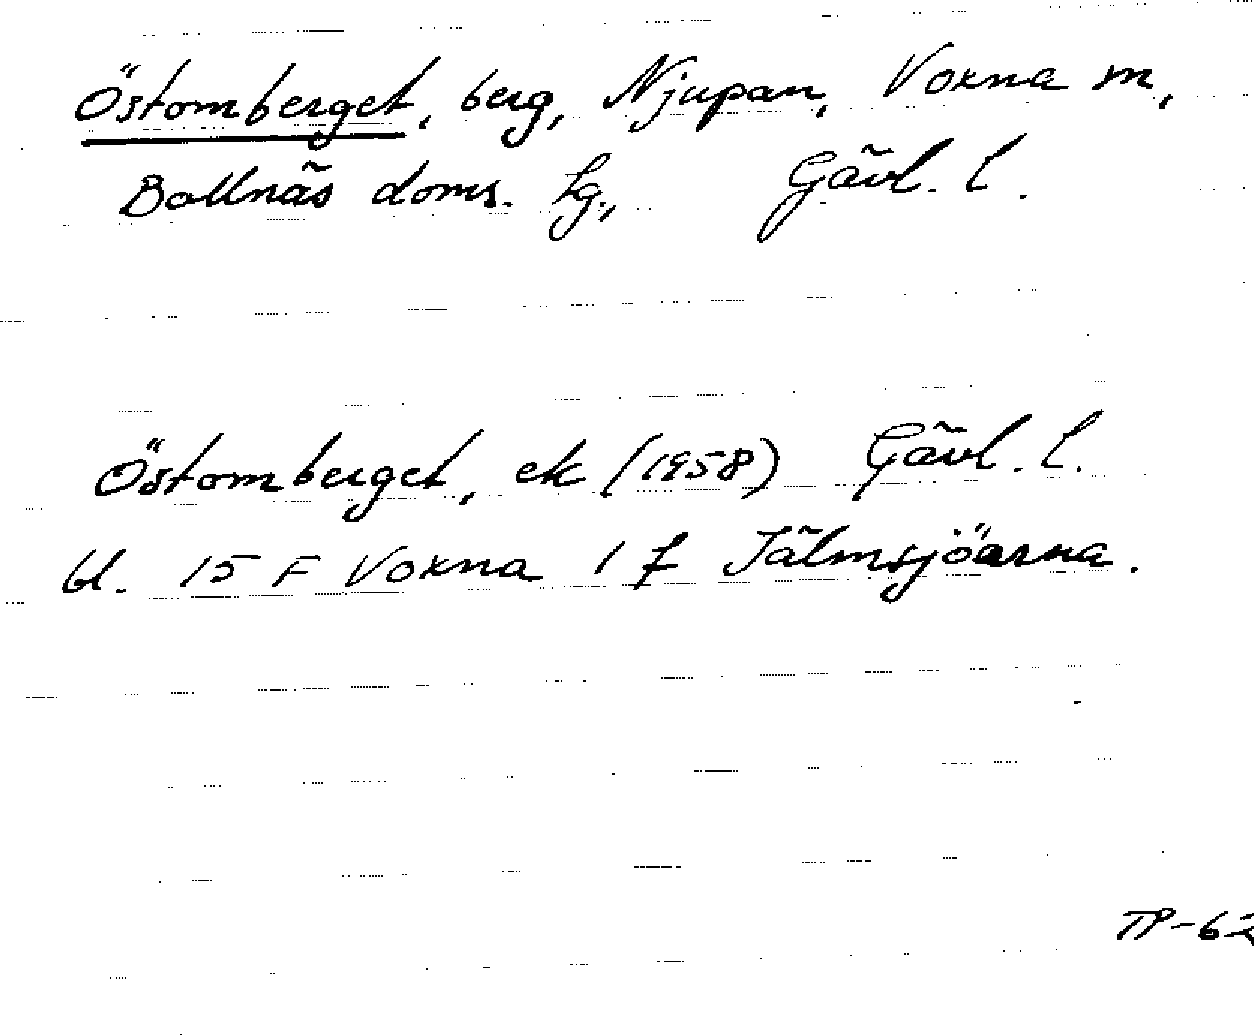 Östomberget, berg, Njupan, Voxna m,
Bollnäs doms. hg., Gävl. l.
Östomberget, ek (1958) Gävl. l.
bl. 15 F Voxna 1 f Jälmsjöarna.
TP-62